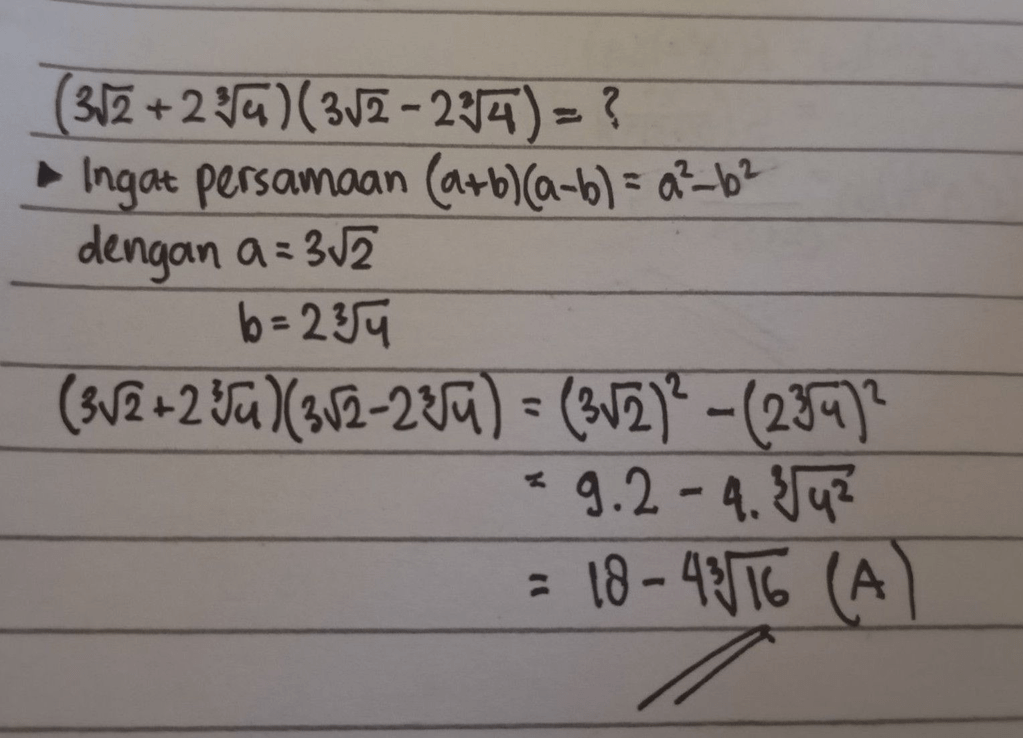 (3√2 + 2∛4)(3√2 - 2∛4) = ?
▸ Ingat persamaan (a+b)(a-b) = a²-b²
dengan a = 3√2
b = 2∛4
(3√2+2∛4)(3√2-2∛4) = (3√2)² - (2∛4)²
= 9.2 - 4.∛4²
= 18 - 4∛16 (A)